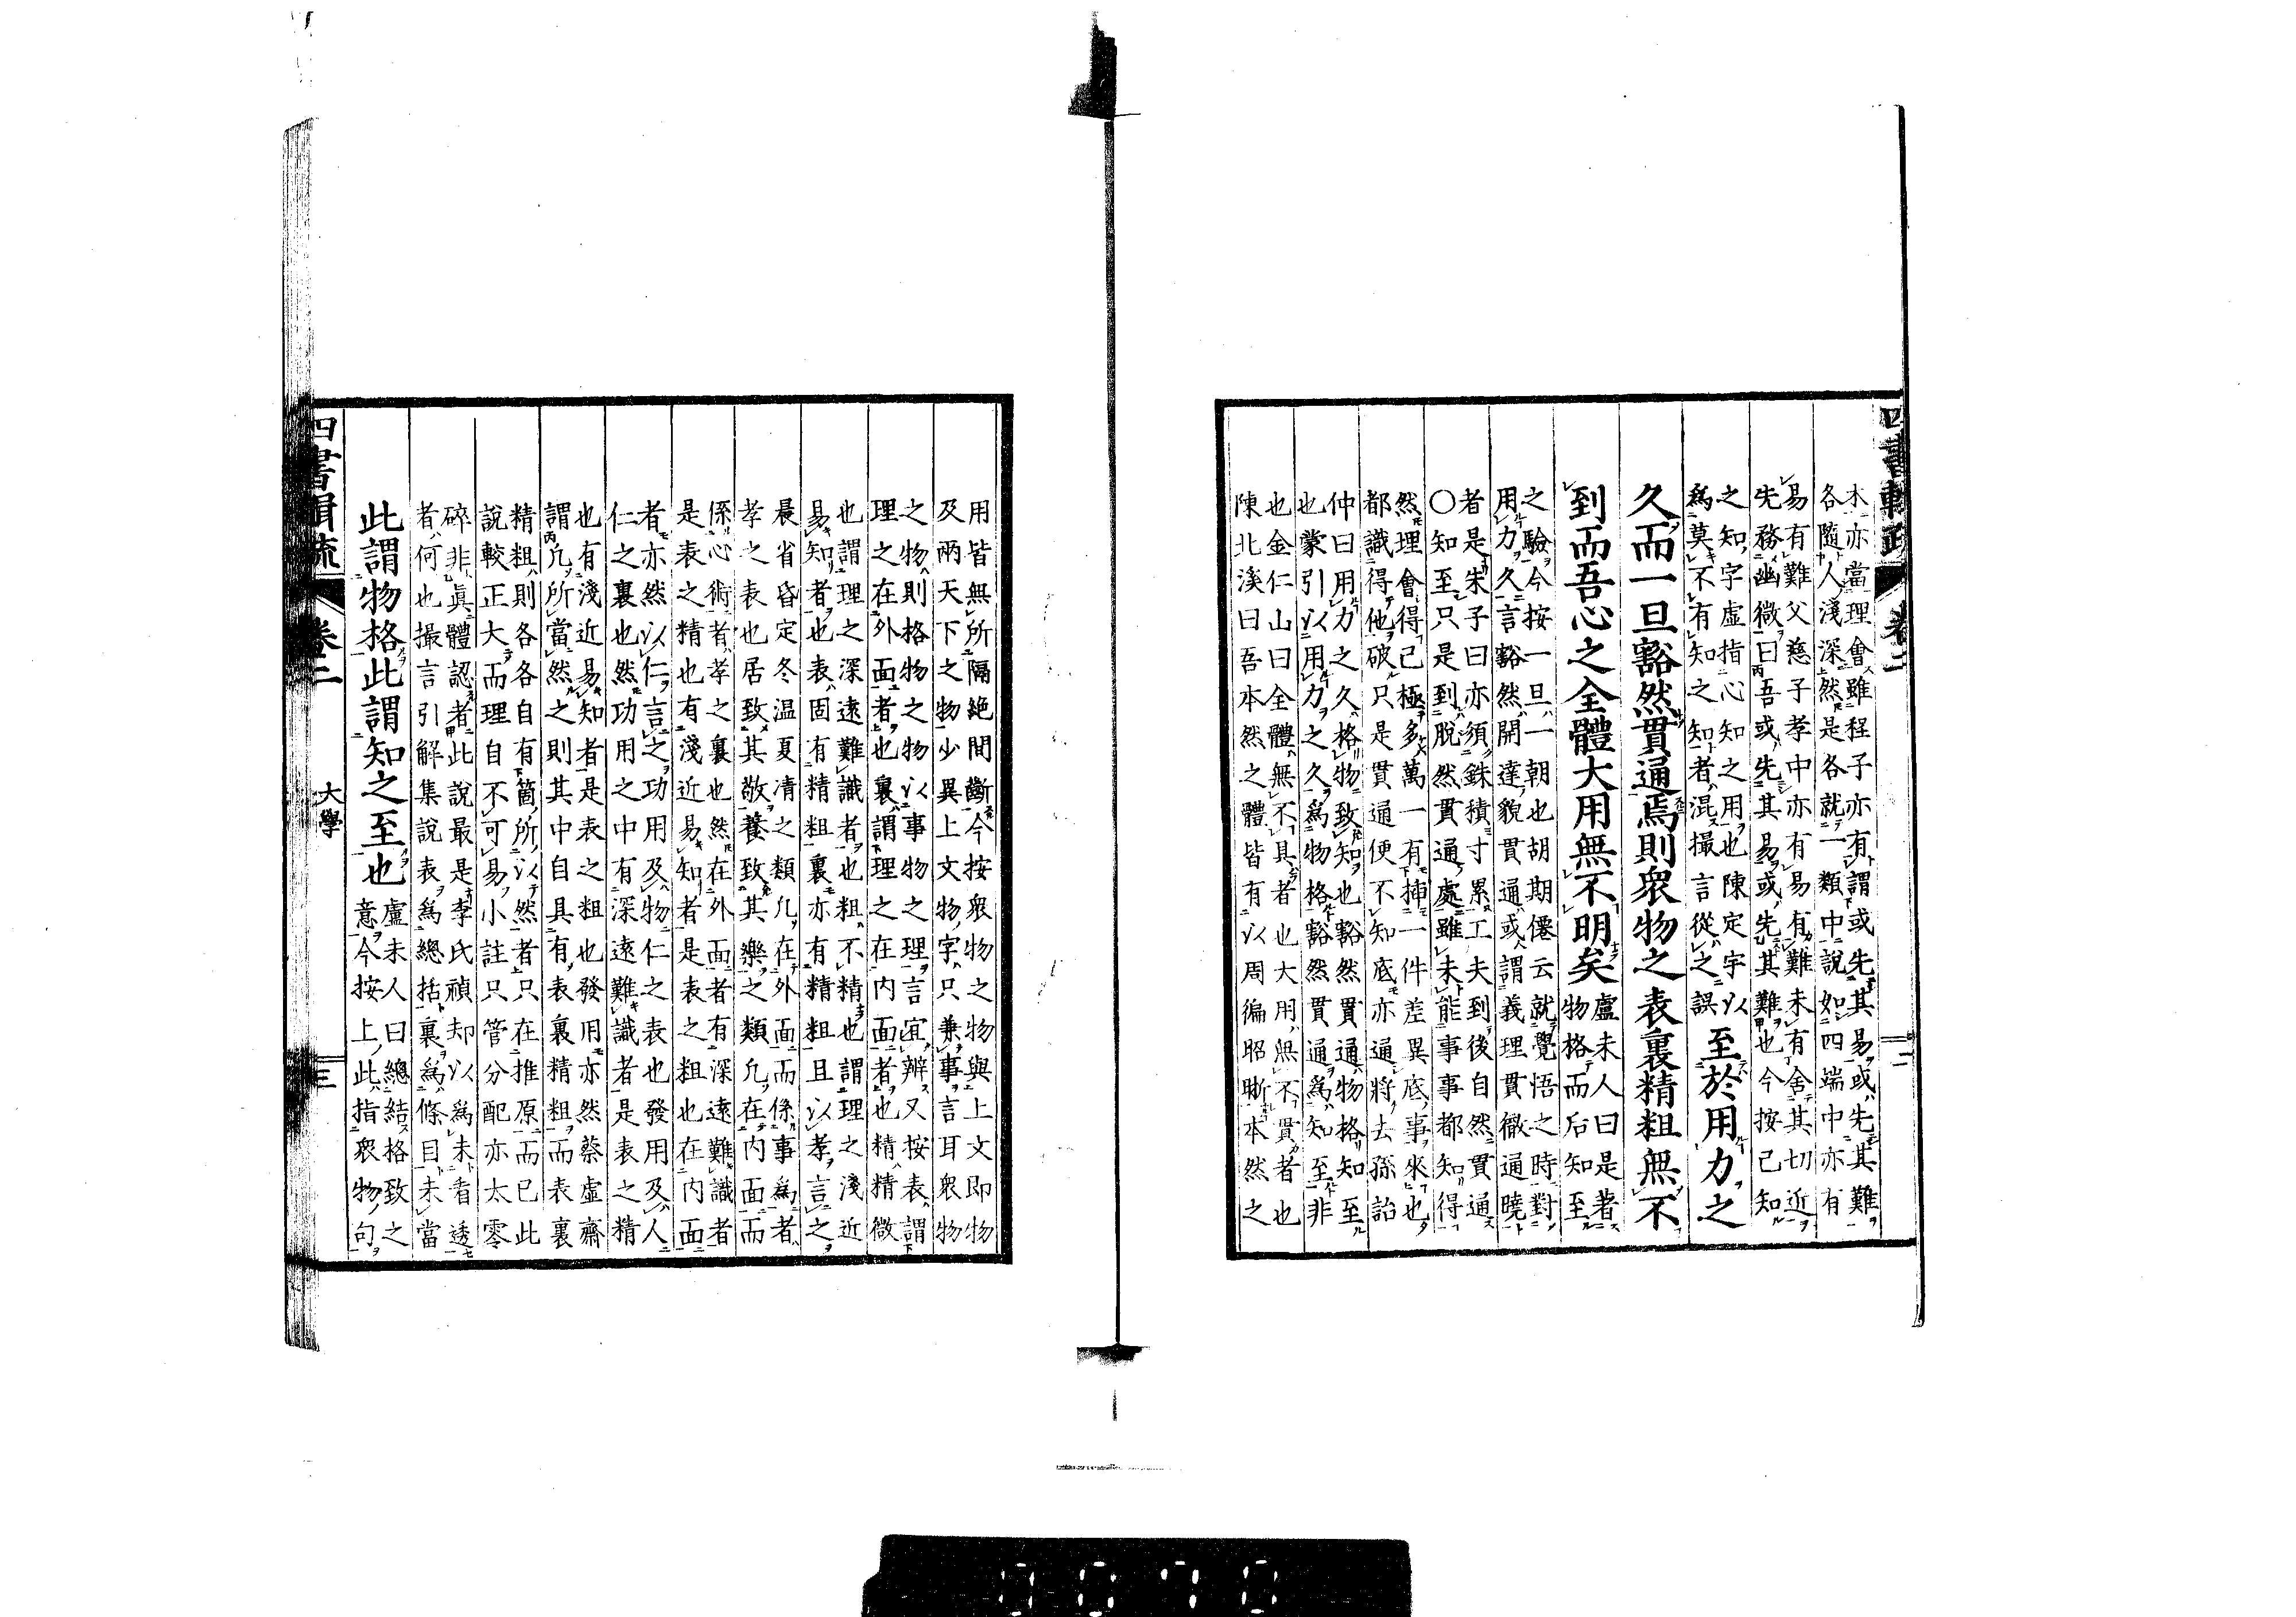 四書輯疏 卷二 二
木亦當理會雖程子亦有謂或先其易或先其難
各隨人淺深然是各就一類中說如四端中亦有
易有難父慈子孝中亦有易有難未有舍其切近
先務幽微曰吾或先其易或先其難也今按已知
之知字虛指心知之用也陳定宇以
爲莫不有知之知者混撮言從之誤
至於用力之
久而一旦豁然貫通焉則衆物之表裏精粗無不
到而吾心之全體大用無不明矣
盧未人曰是著
物格而后知至
之驗今按一旦一朝也胡期僊云就覺悟之時對
用力久言豁然開達貌貫通或謂義理貫徹通曉
者是朱子曰亦須銖積寸累工夫到後自然貫通
〇知至只是到脫然貫通處雖未能事事都知得
然理會得已極多萬一有插一件差異底事來也
都識得他破只是貫通便不知底亦通將去孫詒
仲曰用力之久格物致知也豁然貫通物格知至
也蒙引以用力之久爲物格豁然貫通爲知至非
也金仁山曰全體無不具者也大用無不貫者也
陳北溪曰吾本然之體皆有以周徧昭晰本然之
用皆無所隔絶間斷今按衆物之物與上文即物
及兩天下之物少異上文物字只兼事言耳衆物
之物則格物之物以事物之理言宜辨又按表謂
理之在外面者也裏謂理之在内面者也精精微
也謂理之深遠難識者也粗不精也謂理之淺近
易知者也表固有精粗裏亦有精粗且以孝言之
晨省昏定冬温夏凊之類凡在外面而係事爲者
孝之表也居致其敬養致其樂之類凡在内面而
係心術者孝之裏也然在外面者有深遠難識者
是表之精也有淺近易知者是表之粗也在内面
者亦然以仁言之功用及物仁之表也發用及人
仁之裏也然功用之中有深遠難識者是表之精
也有淺近易知者是表之粗也發用亦然蔡虛齋
謂凡所當然之則其中自具有表裏精粗而表裏
精粗則各各自有箇所以然者只在推原而已此
說較正大而理自不可易小註只管分配亦太零
碎非眞體認者此說最是李氏禎却以爲未看透
者何也撮言引解集說表爲總括裏爲條目未當
此謂物格此謂知之至也
盧未人曰總結格致之
意今按上此指衆物句
四書輯疏 卷二 大學 三